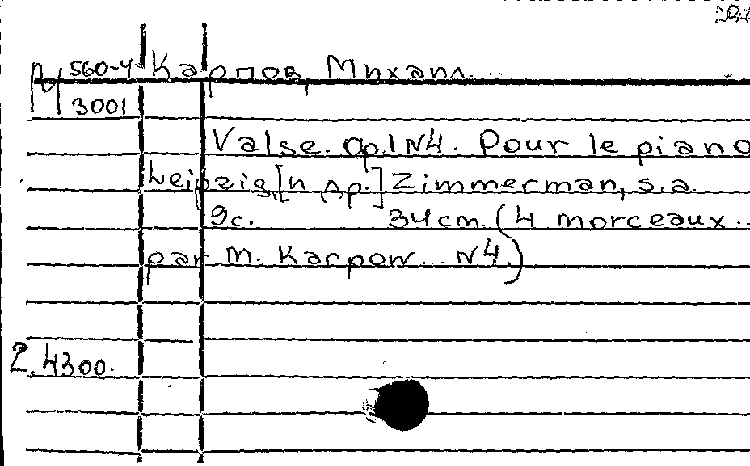 560-4 Карпов, Михаил.
3001
Valse. Op.1 N4. Pour le piano
Leipzig, [и др.] Zimmerman, s.a.
9c. 34cm. (4 morceaux..
par M. Karpow. N4.)
2.4300.